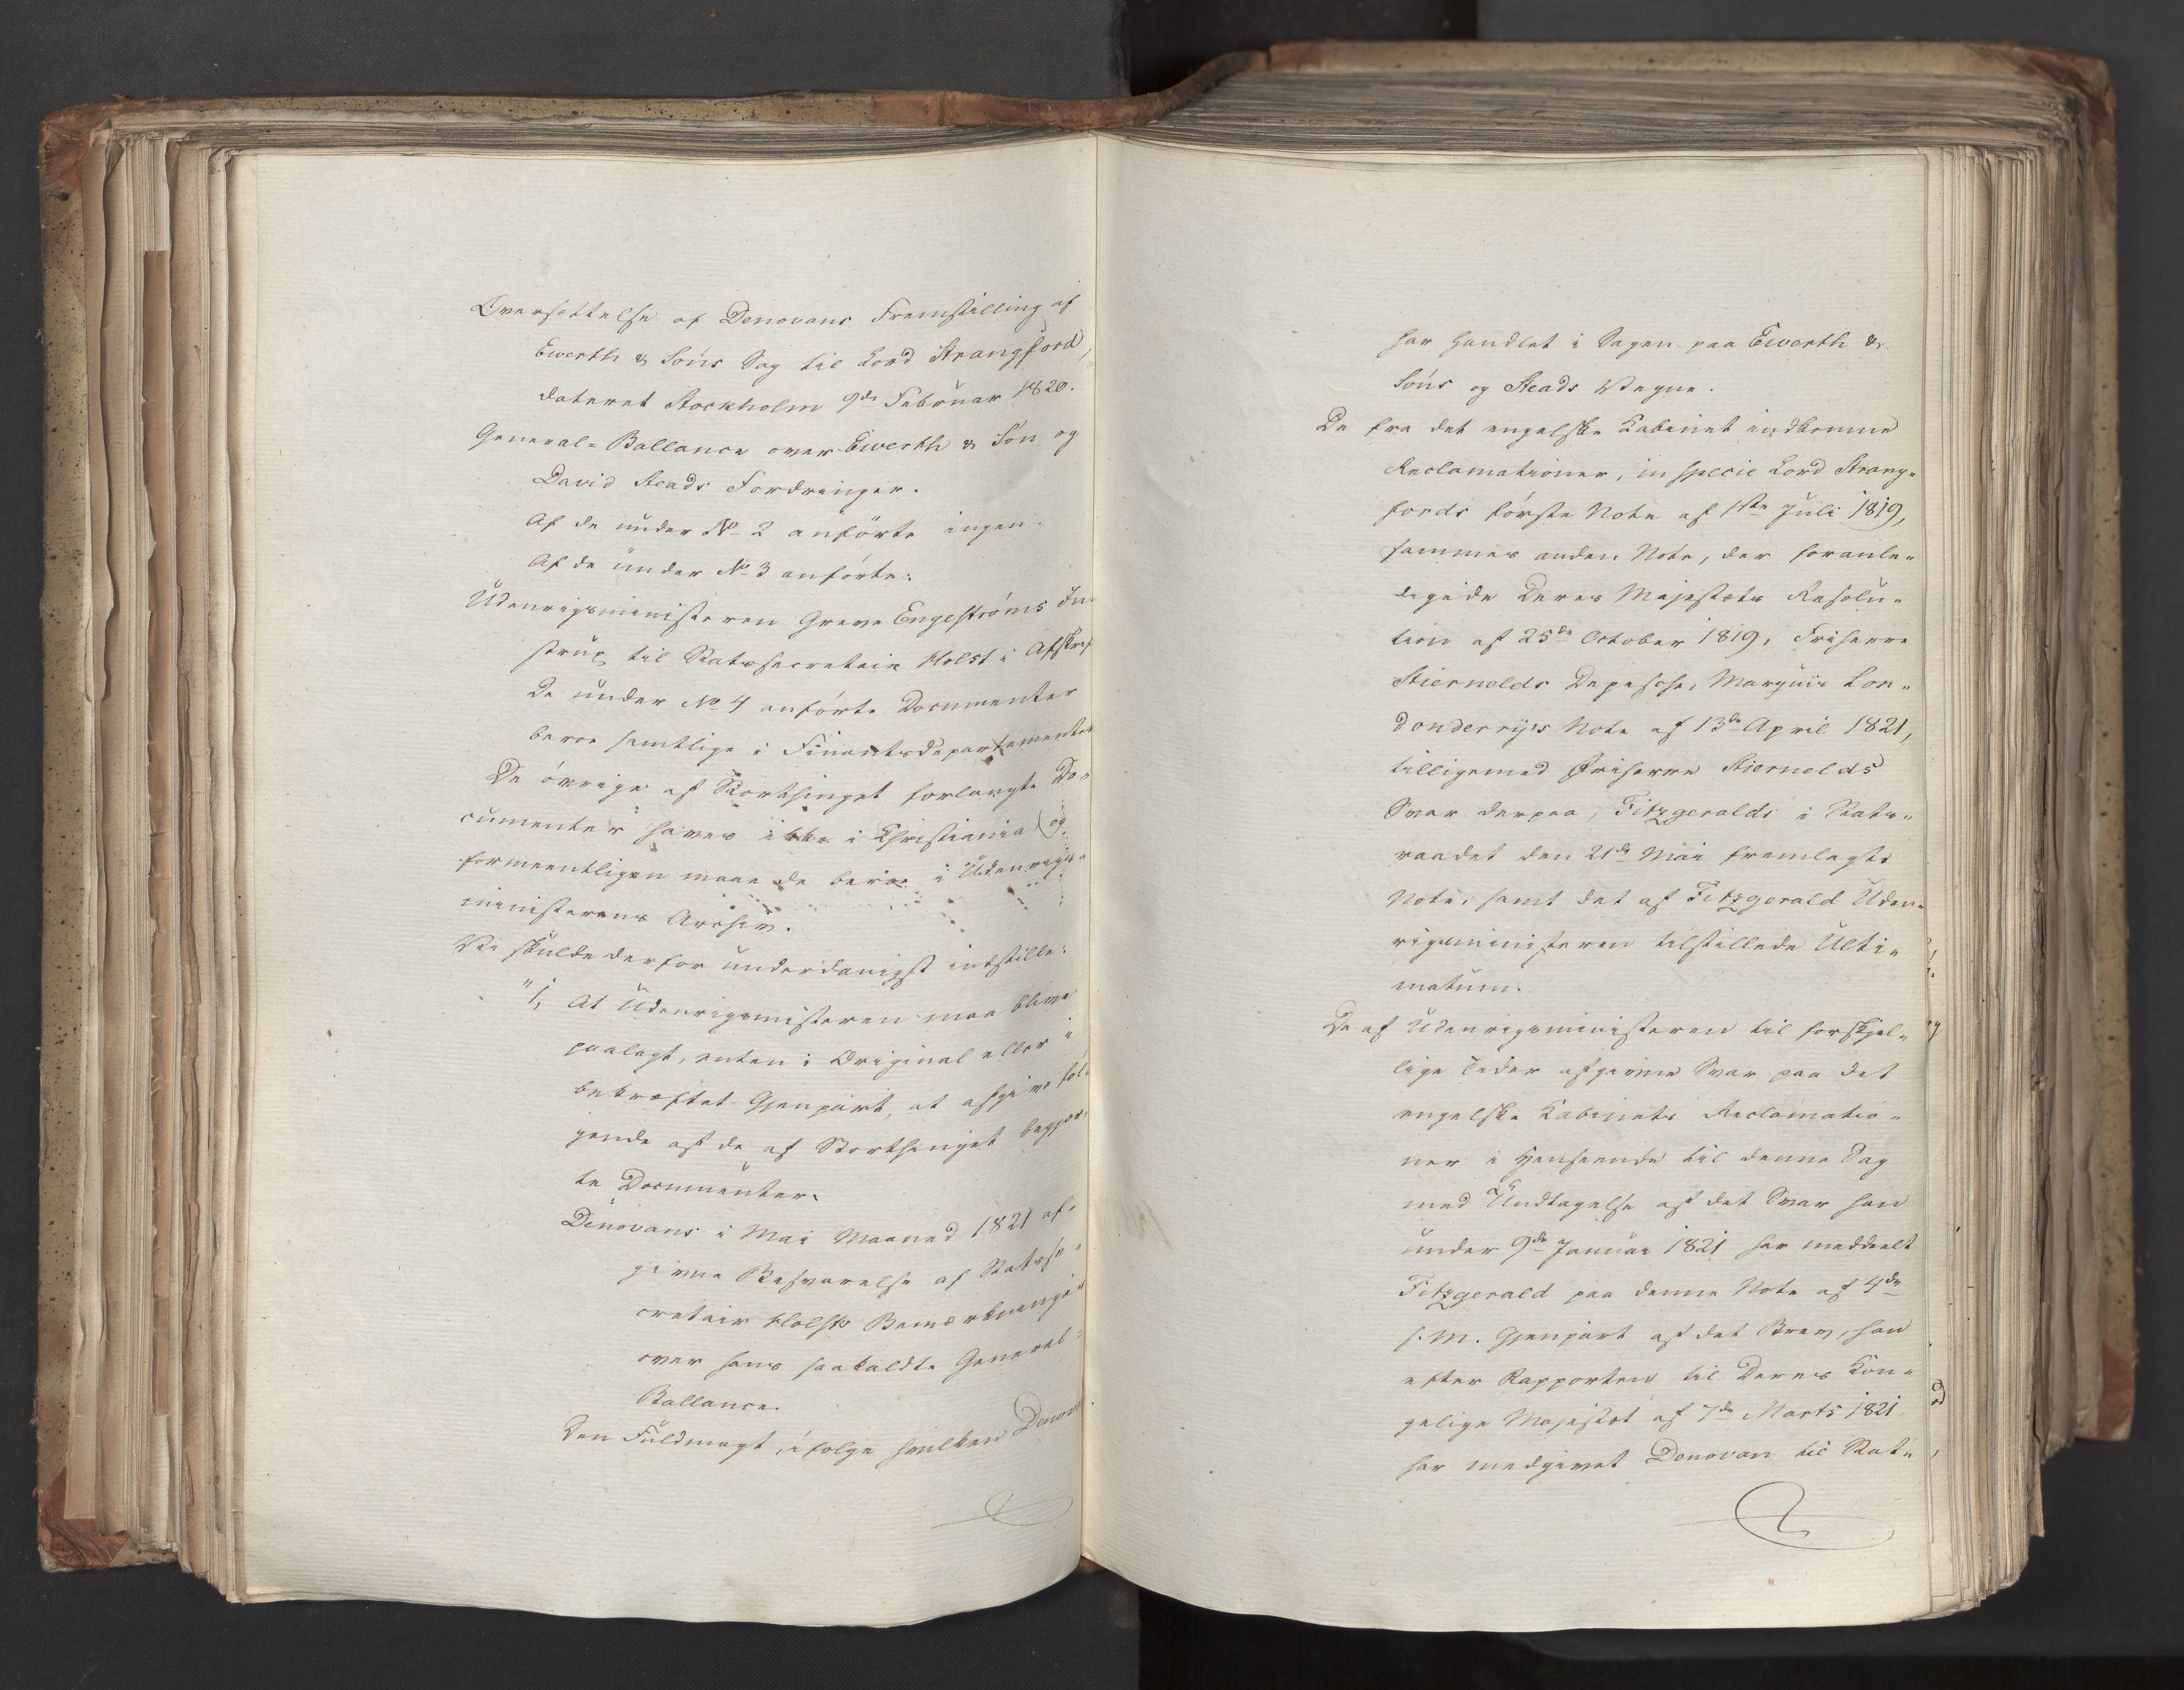 Oversættelse af Denovans Fremstilling af
Ewerth & Söns Sag til Lord Strangford,
dateret Stockholm 9de Februar 1820.
General-Ballance over Ewerth & Sön og
David Reads Fordringer.
Af de under No 2 anförte ingen.
Af de under No 3 anförte:
Udenrigsministeren Greve Engeströms In-
strux til Statssecretair Holst i Afskrift
De under No 4 anförte Documenter
beroe samtlige i Finantsdepartementet
De övrige af Storthinget forlangte Do-
cumenter haves ikke i Christiania (og
formeentligen maae de beroe i Udenrigs-
ministerens Archiv.
Vi skulde derfor underdanigst indstille:
"1, At Udenrigsministeren maa blive
paalagt, enten i Original eller i
bekræftet Gjenpart, at afgive föl-
gende af de af Storthinget begjær-
te Documenter:
Denovans i Mai Maaned 1821 af-
givne Besvarelse af Statsse-
cretair Holsts Bemærkninger
over hans saakaldte General-
Ballance.
Den Fuldmagt, ifölge hvilken Denovan
har handlet i Sagen paa Ewerth &
Söns og Reads Vegne.
De fra det engelske Kabinet indkomne
Reclamationer, in specie Lord Strang-
fords förste Note af 1ste Juli 1819,
sammes anden Note, der foranle-
digede Deres Majestæts Resolu-
tion af 25de October 1819, Friherre
Stiernelds Depesche, Marquis Lon-
donderry's Note af 13de April 1821,
tilligemed Friherre Stiernelds
Svar derpaa, Fitzgeralds i Stats-
raadet den 21de Mai fremlagte
Note, samt det af Fitzgerald Uden-
rigsministeren tilstillede Ulti-
matum.
De af Udenrigsministeren til forskjel-
lige Tider afgivne Svar paa det
engelske Kabinets Reclamatio-
ner i Henseende til denne Sag
med Undtagelse af det Svar han
under 9de Januar 1821 har meddeelt
Fitzgerald paa denne Note af 4de
s. M. Gjenpart af det Brev, han
efter Rapporten til Deres Kon-
gelige Majestæt af 7de Marts 1821
har medgivet Denovan til Stat-